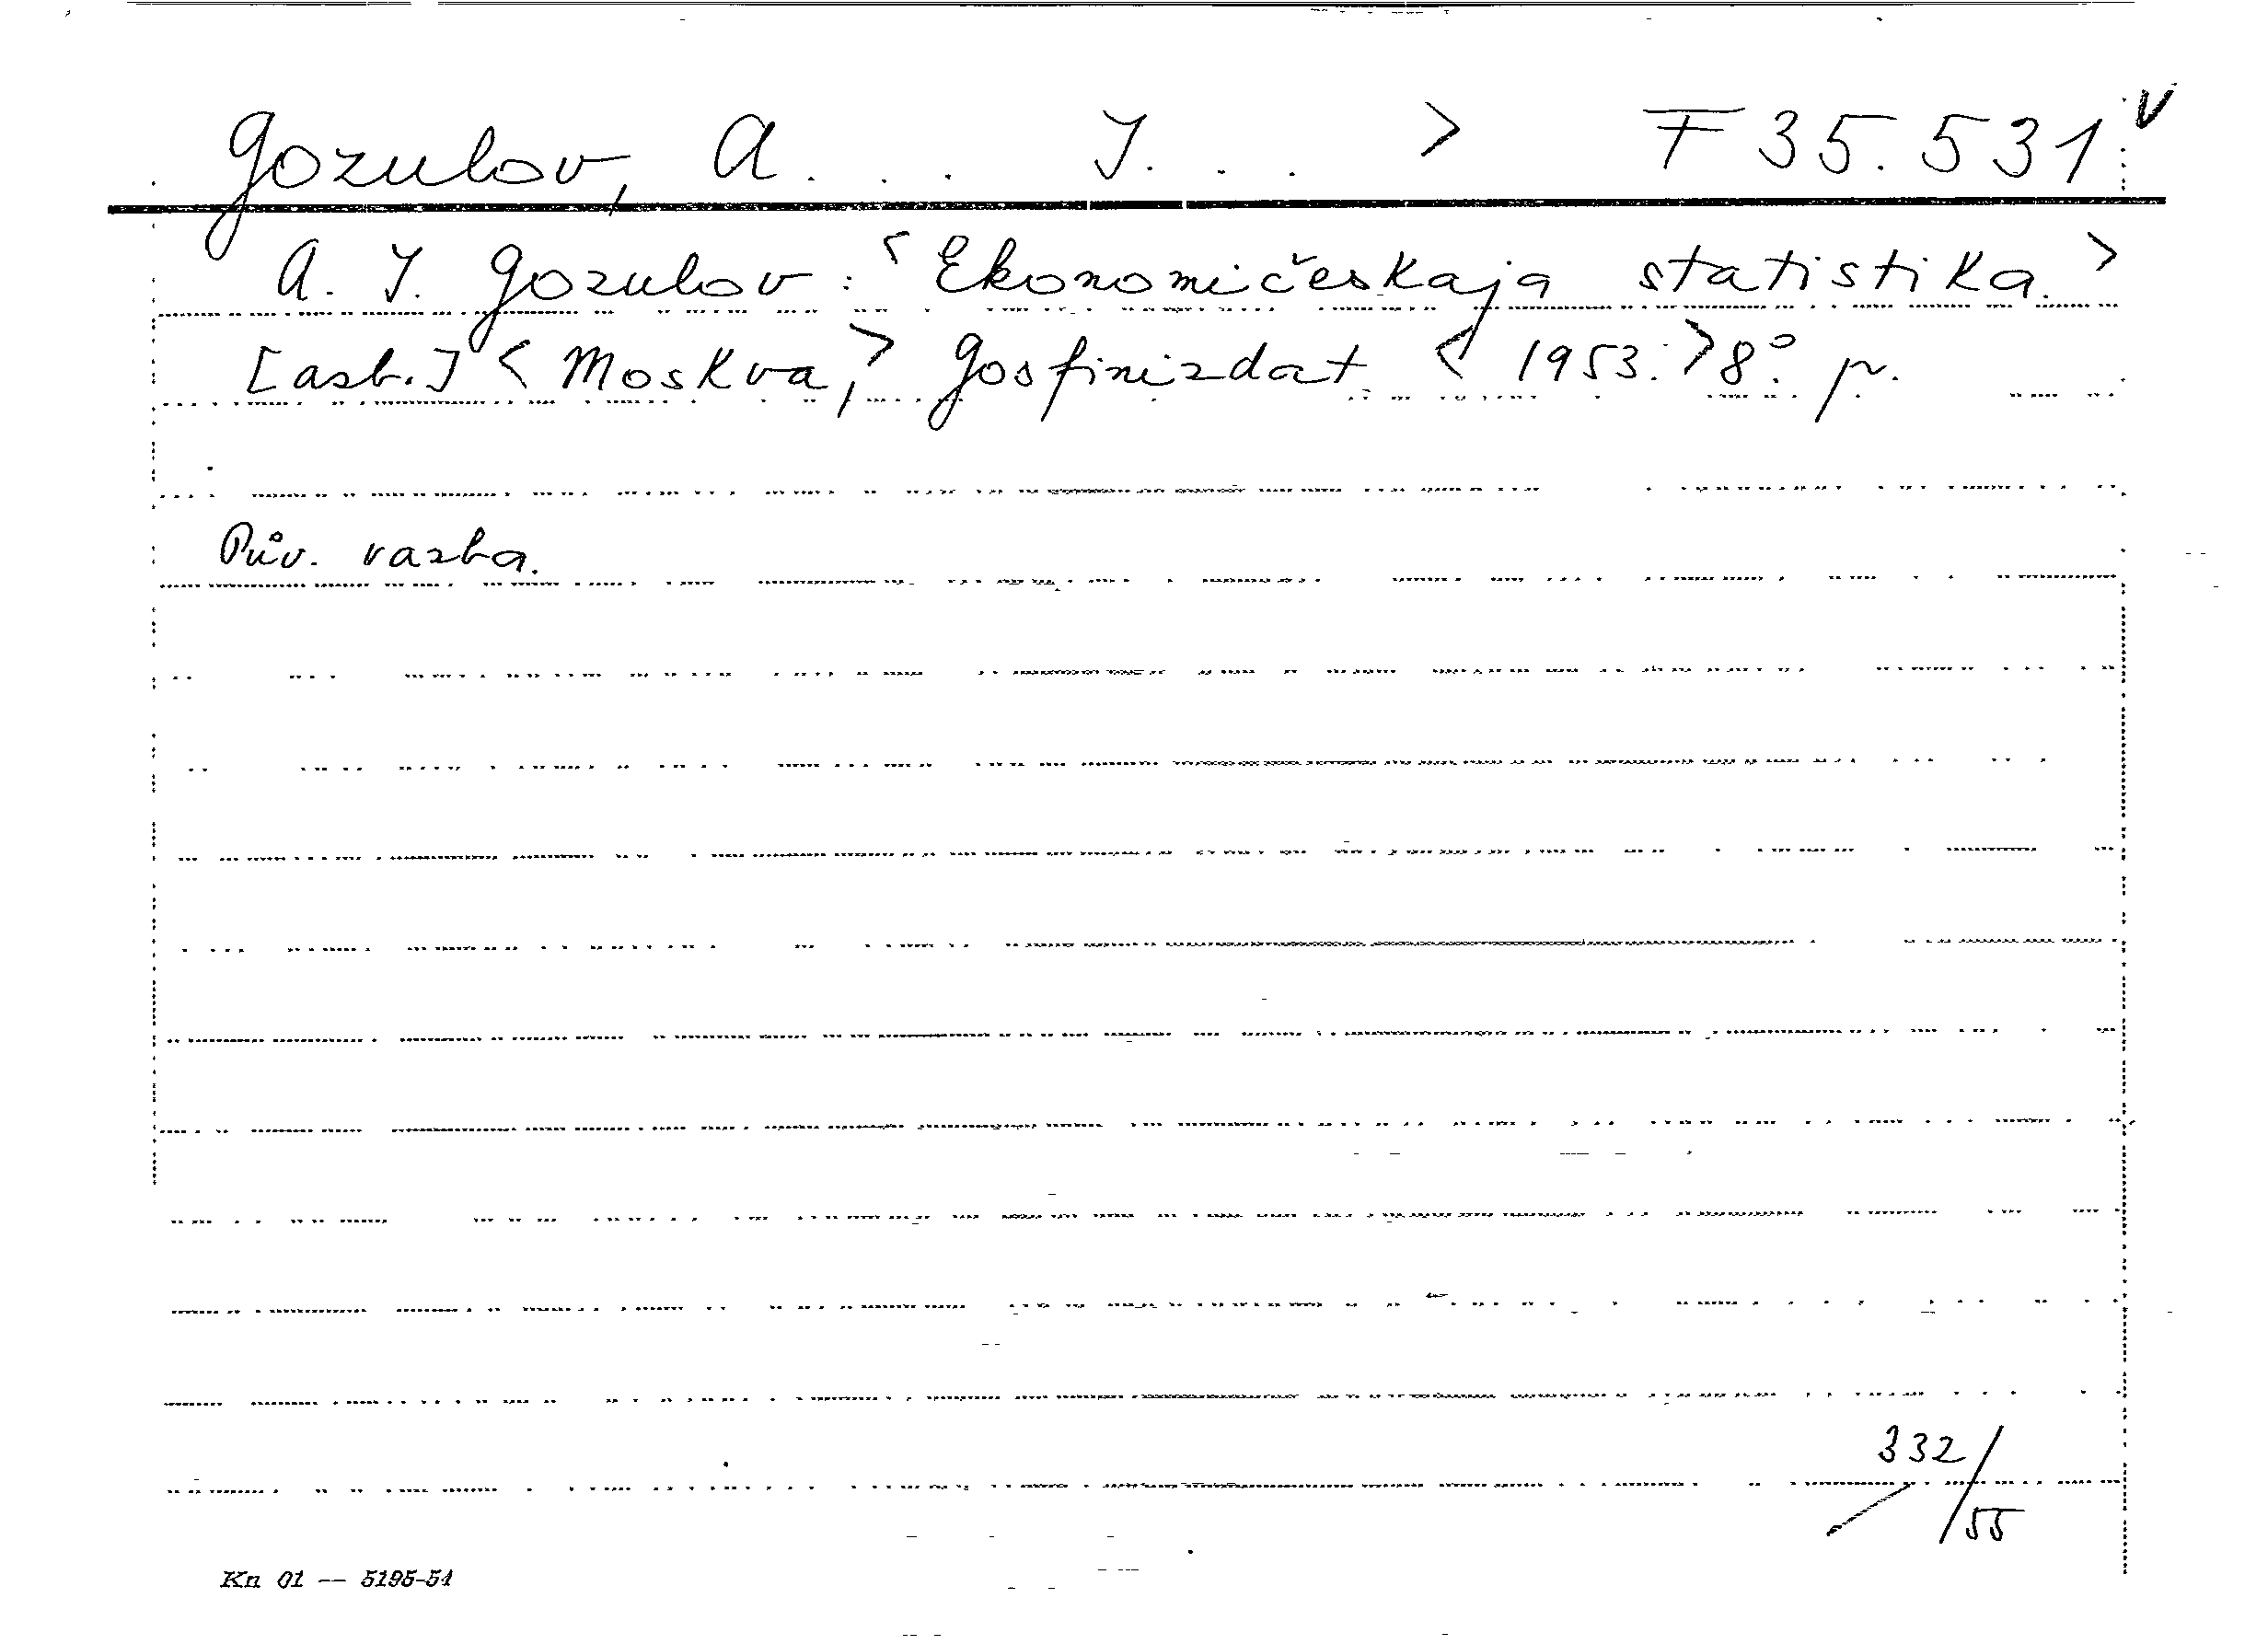 Gozulov, A... J... > F 35.531 v
A. J. Gozulov: < Ekonomičeskaja statistika. >
[azb.] < Moskva, > Gosfinizdat < 1953. > 8°. p.
Pův. vazba.
332/
55
Kn 01 — 5195-54